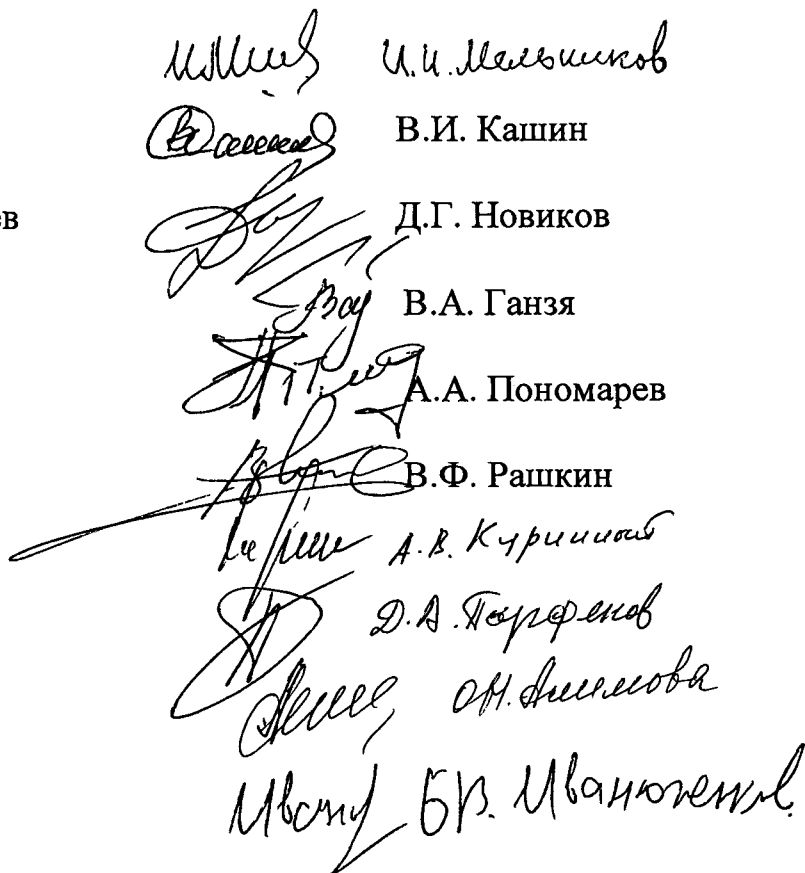 И.И. Мельников
В.И. Кашин
ев Д.Г. Новиков
В.А. Ганзя
А.А. Пономарев
В.Ф. Рашкин
А.В. Куринный
Д.А. Парфенов
О.Н. Алимова
Б.В. Иванюженков